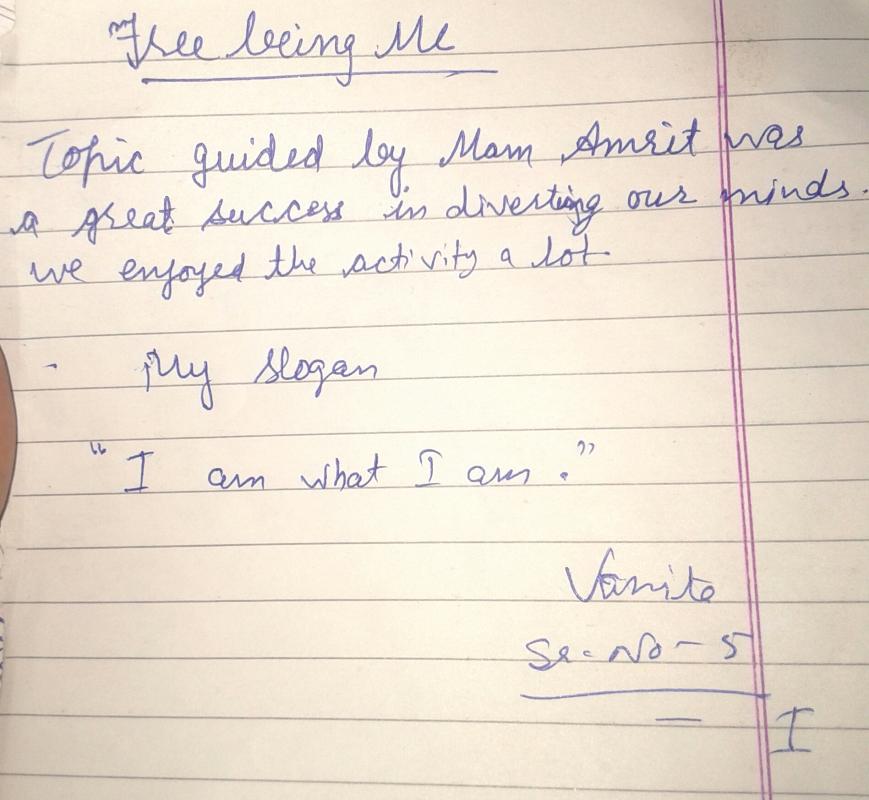 Free being Me
Topic guided by Mam Amrit was
a great success in diverting our minds.
we enjoyed the activity a lot
- My slogan
"I am what I am."
Vanita
Sr. No - 5
I